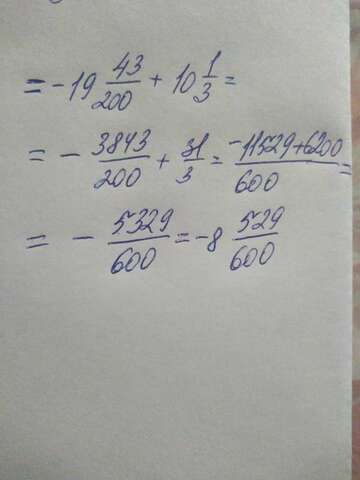 = -19 43/200 + 10 1/3 =
= - 3843/200 + 31/3 = -11529+6200/600 =
= - 5329/600 = -8 529/600